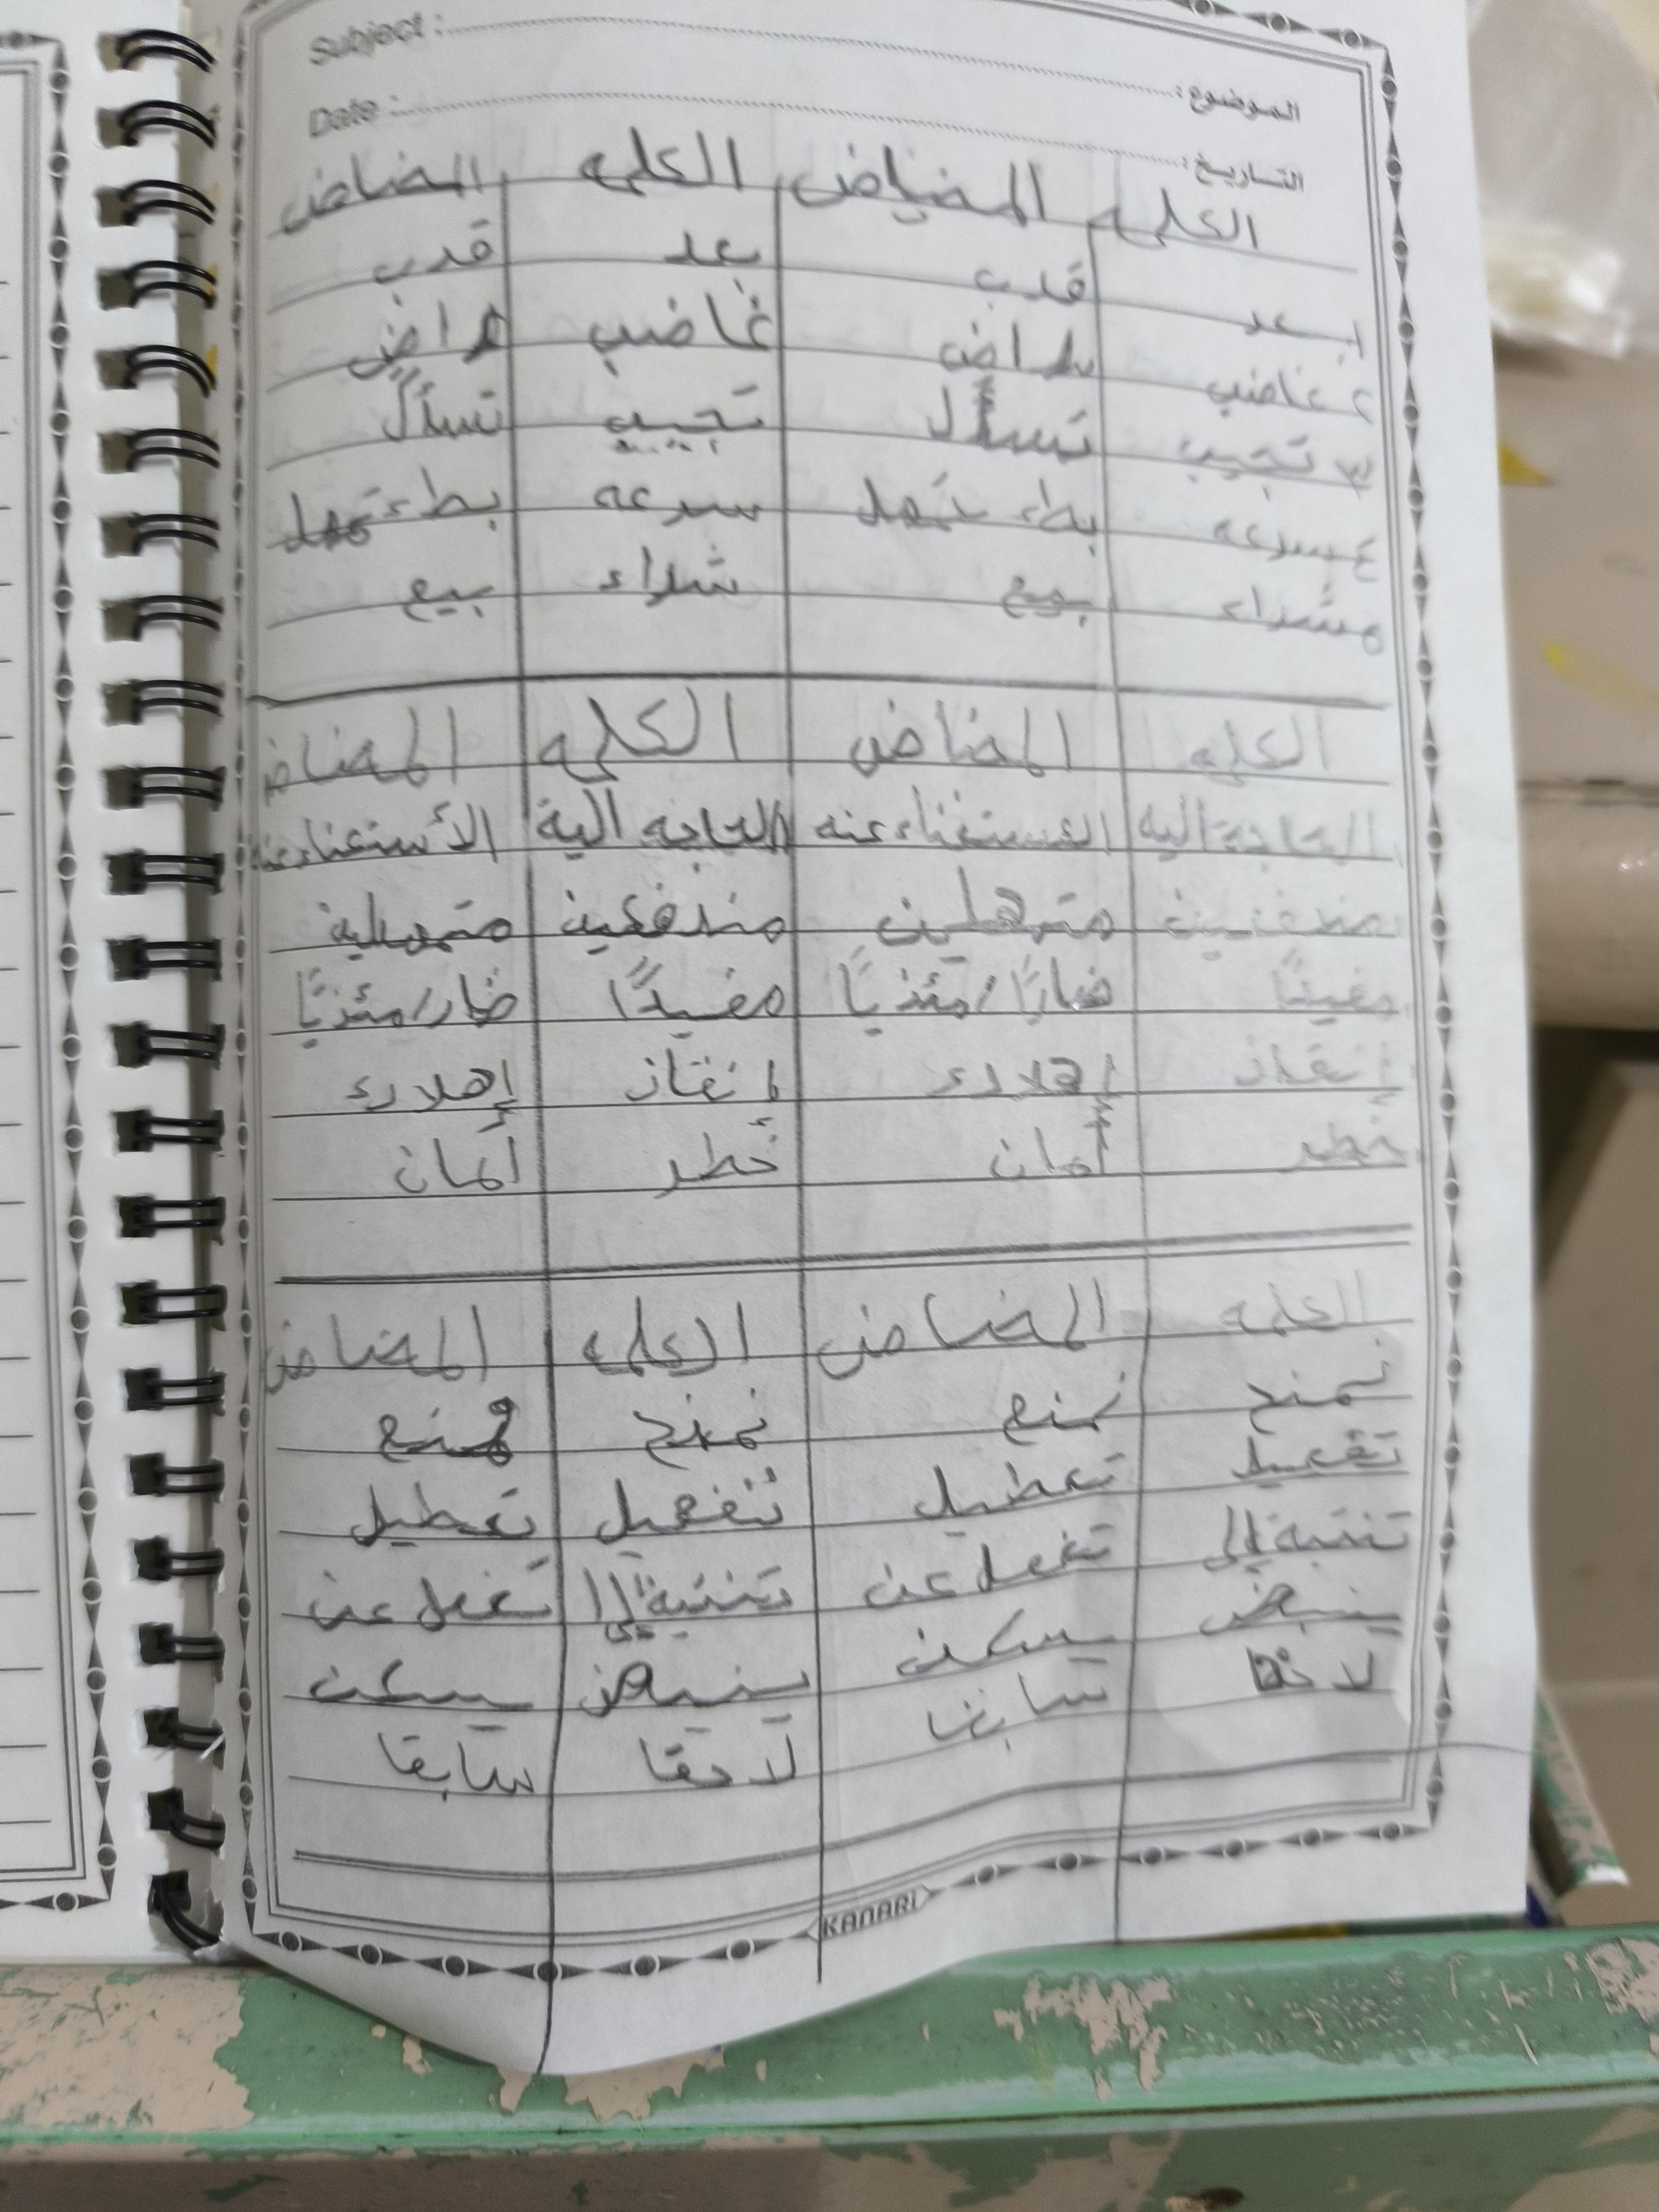 Subject : الموضوع :
Date : التاريخ :
الكلمه المضاض الكلمه المضاض
١ بعد قرب بعد قرب
٢ غاضب راض غاضب راض
٣ تجيب تسأل تجيب تسأل
٤ سرعه بطء تمهل سرعه بطء تمهل
٥ شراء بيع شراء بيع
الكلمه المضاض الكلمه المضاض
الحاجة الية الاستغناء عنه الحاجه الية الأستغناء عنه
مندفعين متمهلين مندفعين متمهلين
مفيدًا ضارًا / مئذيًا مفيدًا ضار / مئذيًا
إنقاذ إهلاك إنقاذ إهلاك
خطر أمان خطر أمان
الكلمه المضاض الكلمه المضاض
نمنح نمنع نمنح نمنع
تفعيل تعطيل تفعيل تعطيل
تنتبة إلى تغفل عن تنتبة إلى تغفل عن
ينبض يسكن ينبض يسكن
لاحقا سابقا لاحقا سابقا
KANARI